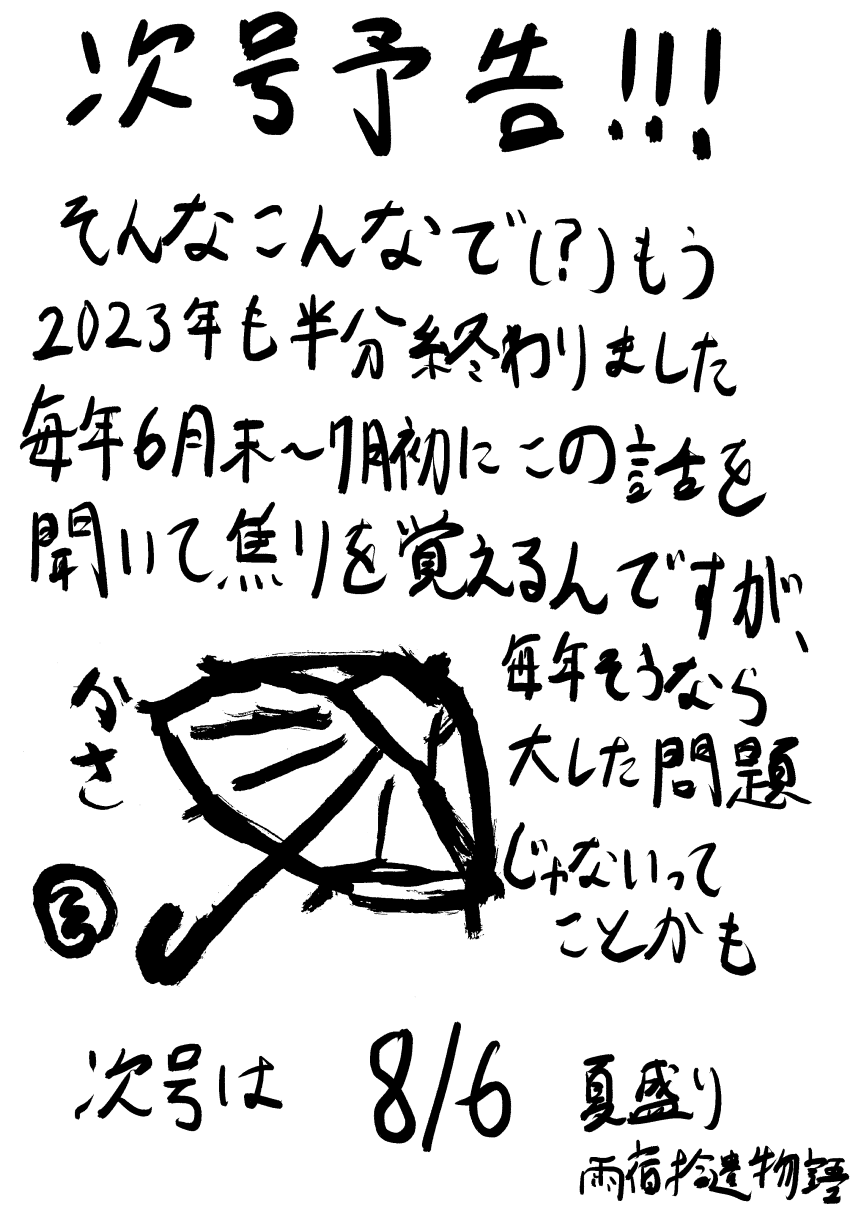 次号予告!!!
そんなこんなで(?)もう
2023年も半分終わりました
毎年6月末~7月初にこの話を
聞いて焦りを覚えるんですが、
毎年そうなら
大した問題
じゃないって
ことかも
かさ
次号は 8/6 夏盛り
雨宿拾遺物語